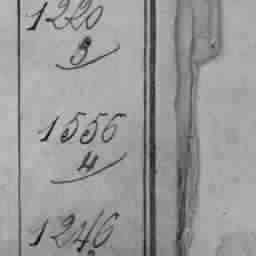 1220
3
1556
4
1246